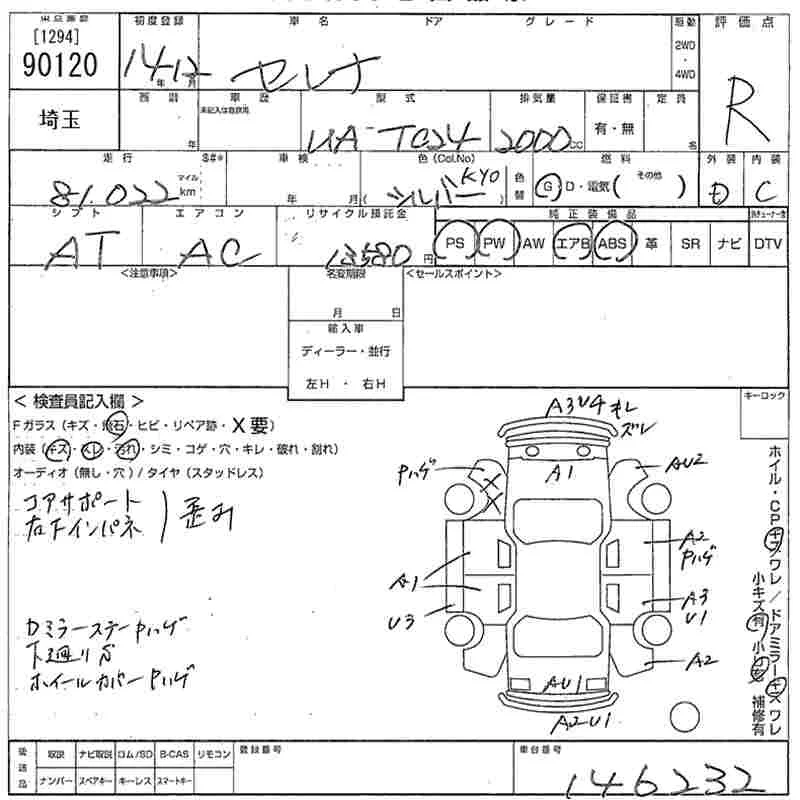 [1294]
90120
初度登録
車名
ドア
グレード
駆動
評価点
14年12月
セレナ
2WD
・
4WD
R
埼玉
車歴
型式
排気量
保証書
定員
年
UA-TC24
2000cc
有・無
名
走行
S#*
車検
色(Col.No)
燃料
外装
内装
81,022
マイル
km
年 月
(シルバー KY0)
色替
G・D・電気(その他 )
D
C
シフト
エアコン
リサイクル預託金
純正装備品
AT
AC
13580円
PS PW AW エアB ABS 革 SR ナビ DTV
<注意事項>
名変期限
<セールスポイント>
月 日
輸入車
ディーラー・並行
左H ・ 右H
< 検査員記入欄 >
キーロック
Fガラス(キズ・飛石・ヒビ・リペア跡・X要)
内装(キズ・スレ・汚れ・シミ・コゲ・穴・キレ・破れ・割れ)
オーディオ(無し・穴)/タイヤ(スタッドレス)
コアサポート
右下インパネ
歪み
A3U4キレ
ズレ
Pハゲ
X
X
A1
AU2
A2
Pハゲ
A1
U3
A3
U1
A2
AU1
A2U1
Dミラーステー Pハゲ
下廻りS
ホイールカバー Pハゲ
ホイル・CPキズワレ/ドアミラーキズワレ
小キズ有 小凹有 補修有
後送品
取説 ナビ取説 ロム/SD B-CAS リモコン
ナンバー スペアキー キーレス スマートキー
登録番号
車台番号
146232